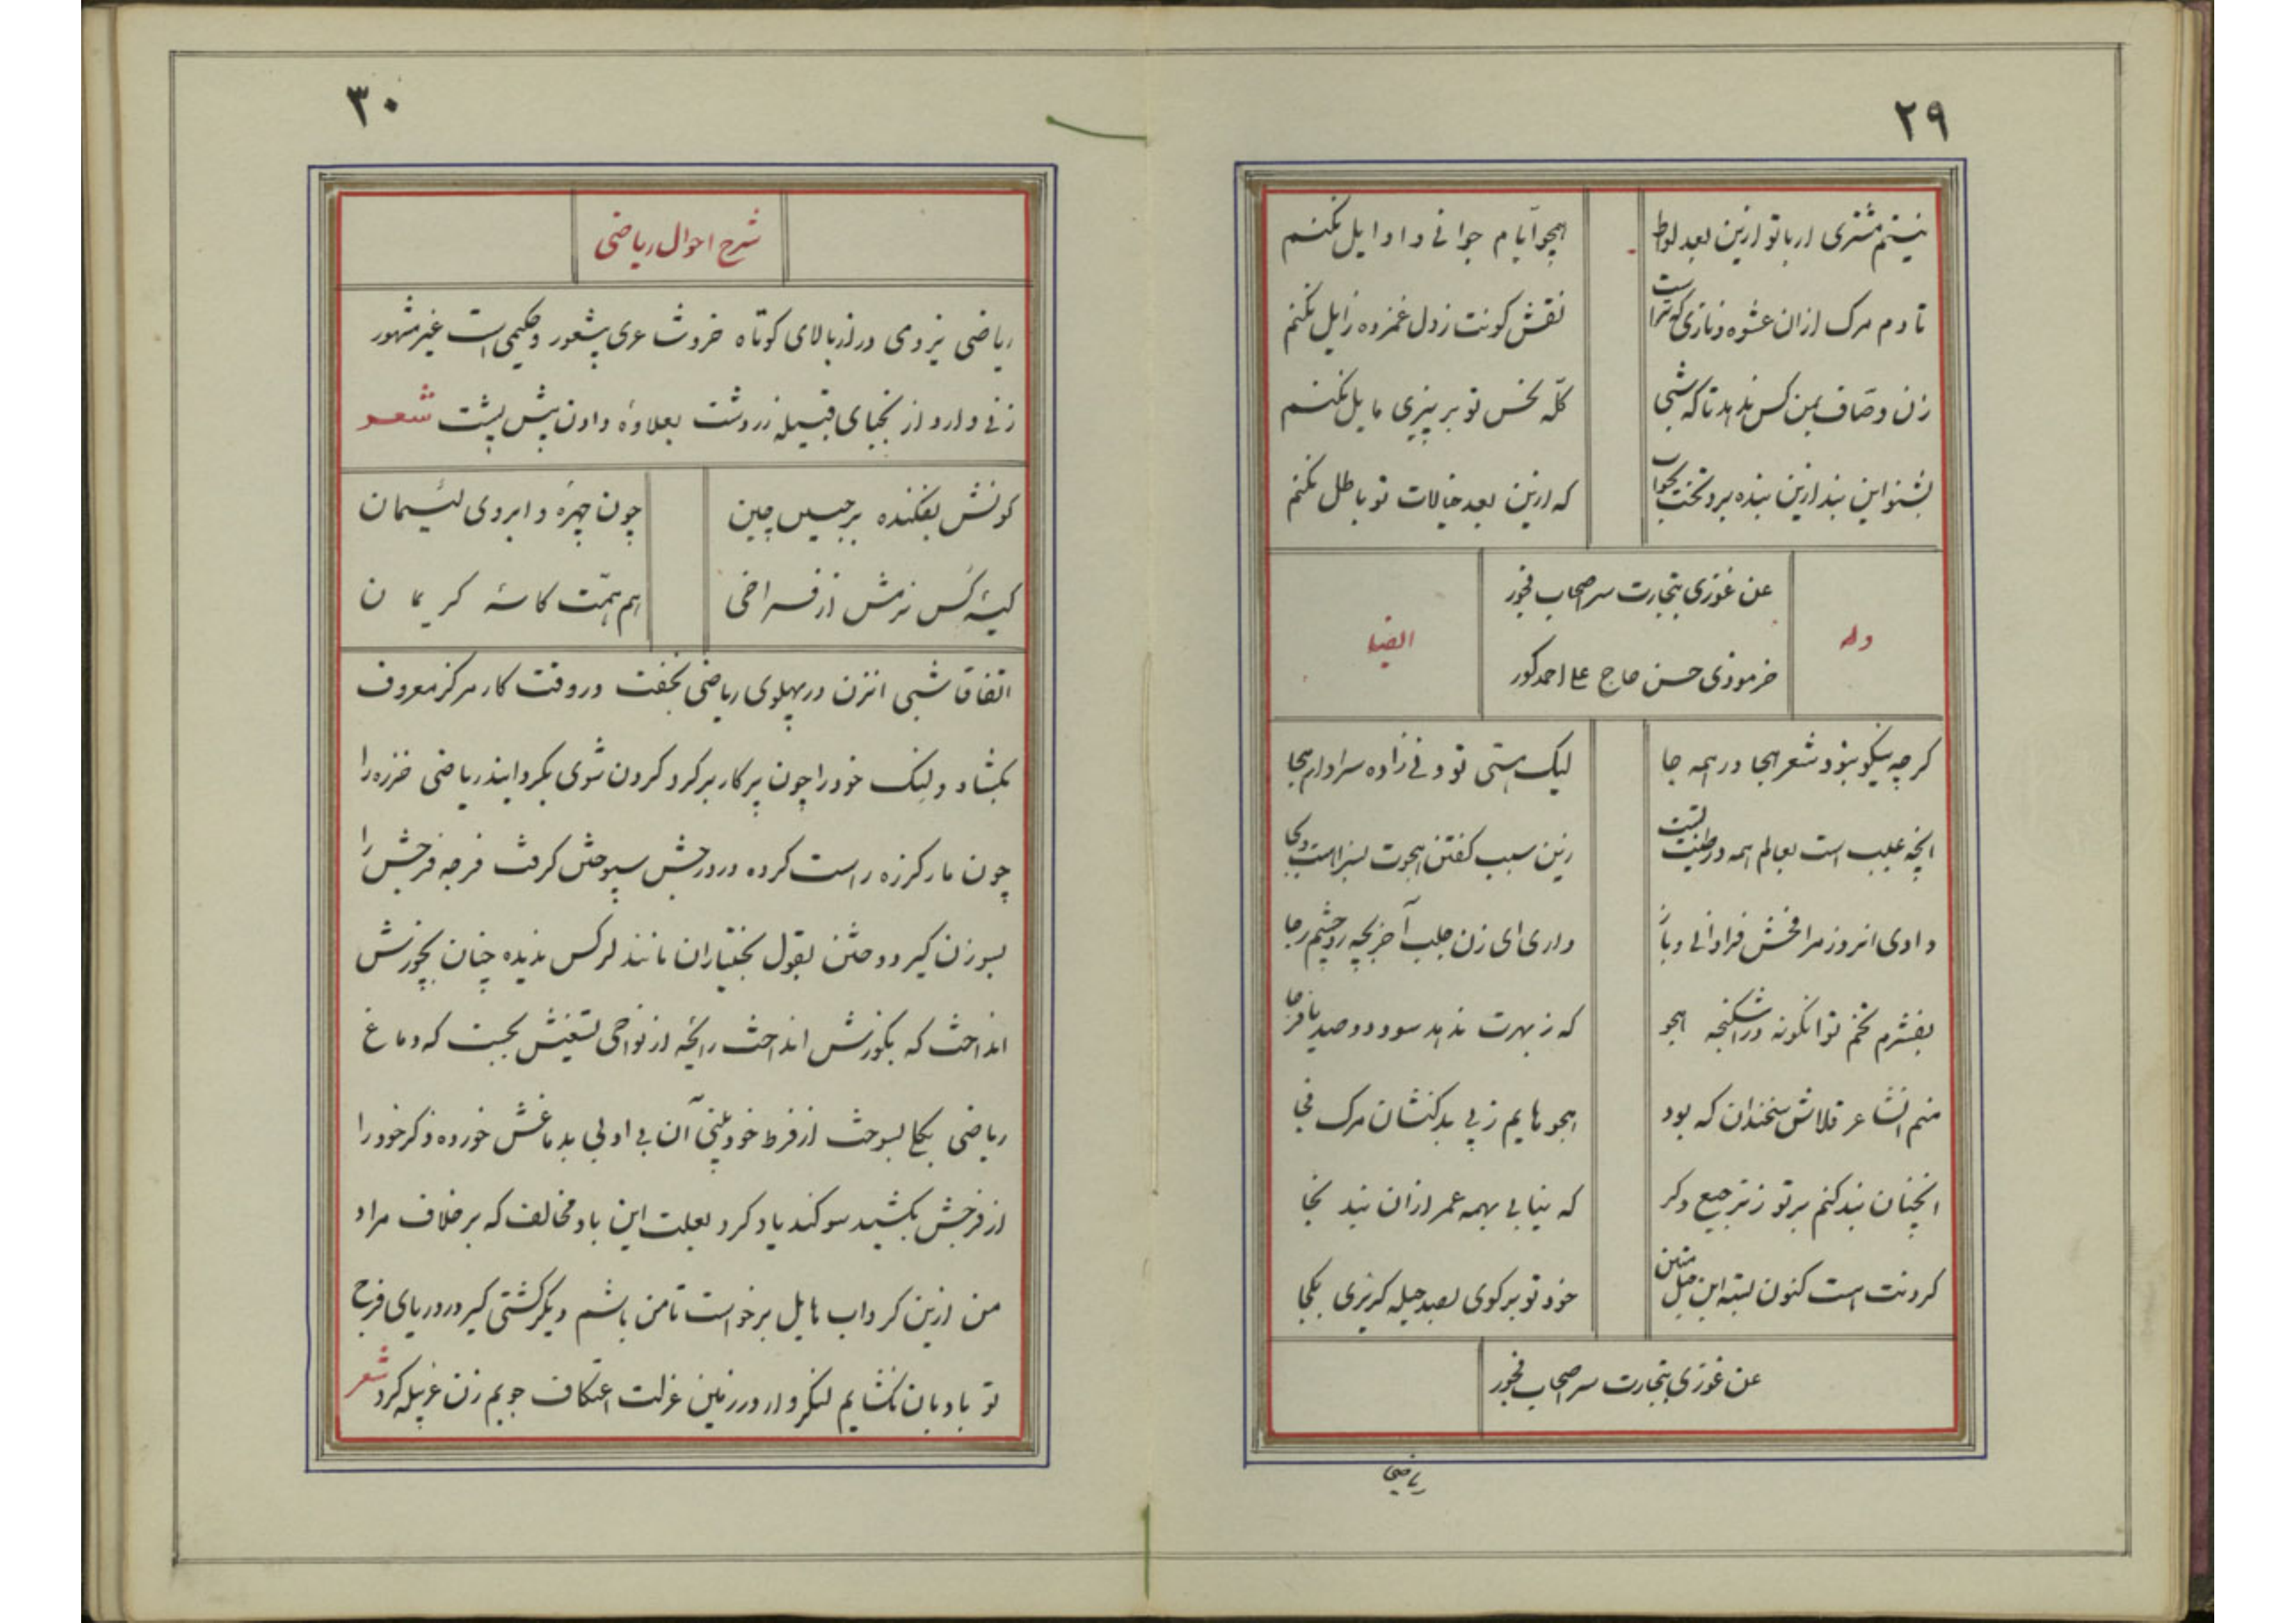 ۲۹
نیستم مشتری ار با تو ازین بعد لواط
همچو ایام جوانی و اوایل نکنم
تا دم مرک ازان عشوه و نازی که تراست
نقش کونت ز دل غمزده زایل نکنم
زن وصاف بمن کس ندهد تا که شبی
کلّه نحس تو بر پیزی مایل نکنم
بشنو این پند ازین بنده برو تخت بخواب
که ازین بعد خیالات تو باطل نکنم
وله
عن غوزی بتجارت سر اصحاب فجور
خرموذی حسن حاج علی احمد کور
ایضا
کرچه نیکو نبود شعر هجا در همه جا
لیک هستی تو ونی زاده سزاوار هجا
آنچه عیب است بعالم همه در طینت تست
زین سبب کفتن هجوت بسزا است و بجا
دادی امروز مرا فحش فراوانی و باز
داری ای زن جلب آخر بچه رو چشم رجا
بفشرم تخم تو انکونه در اشکنجه هجو
که ز بهرت ندهد سود دو صد
منم انشاعر قلاش سخندان که بود
هجوهایم ز پی بدکنشان مرک فجا
انچنان بند کنم بر تو ز ترجیع دکر
که نیابی بهمه عمر ازان بند نجا
کردنت است کنون بسته این حبل متین
خود تو برکوی بصد حیله کریزی بکجا
عن غوزی بتجارت سر اصحاب فجور
ریاضی
۳۰
شرح احوال ریاضی
ریاضی یزدی درازبالای کوتاه خرد شاعری بیشعور و حکیمی است غیر مشهور
زنی دارد از نجبای قبیله زردشت بعلاوهٔ دادن پیش پشت شعر
کونش بفکنده بر جبین چین
چون چهرهٔ و ابروی لئیمان
کیسهٔ کس نرمش از فراخی
هم همّت کاسهٔ کریمان
اتفاقا شبی انزن در پهلوی ریاضی بخفت در وقت کار مرکز معروف
بکشاد و لنک خود را چون پرکار بر کرد کردن شوی بکرد ایند ریاضی خرزه را
چون مار کرزه راست کرده در درجش سپوختن کرفت فرجه فرجش را
بسوزن کیر دوختن بقول بختیاران مانند لر کس ندیده چنان بچوزش
انداخت که بکوزش انداخت رایحه از نواحی بجست که دماغ
ریاضی بکلی بسوخت از فرط خودبینی آن بی ادبی بدماغش خورده ذکر خود را
از فرجش بکشید سوکند یاد کرد بعلت این باد مخالف که بر خلاف مراد
من ازین کرداب هایل برخواست تا من باشم دیکر کشتی کیر در دریای فرج
تو بادبان نکشایم لنکر وار در زمین عزلت اعتکاف جویم زن غربیله کرد شعر